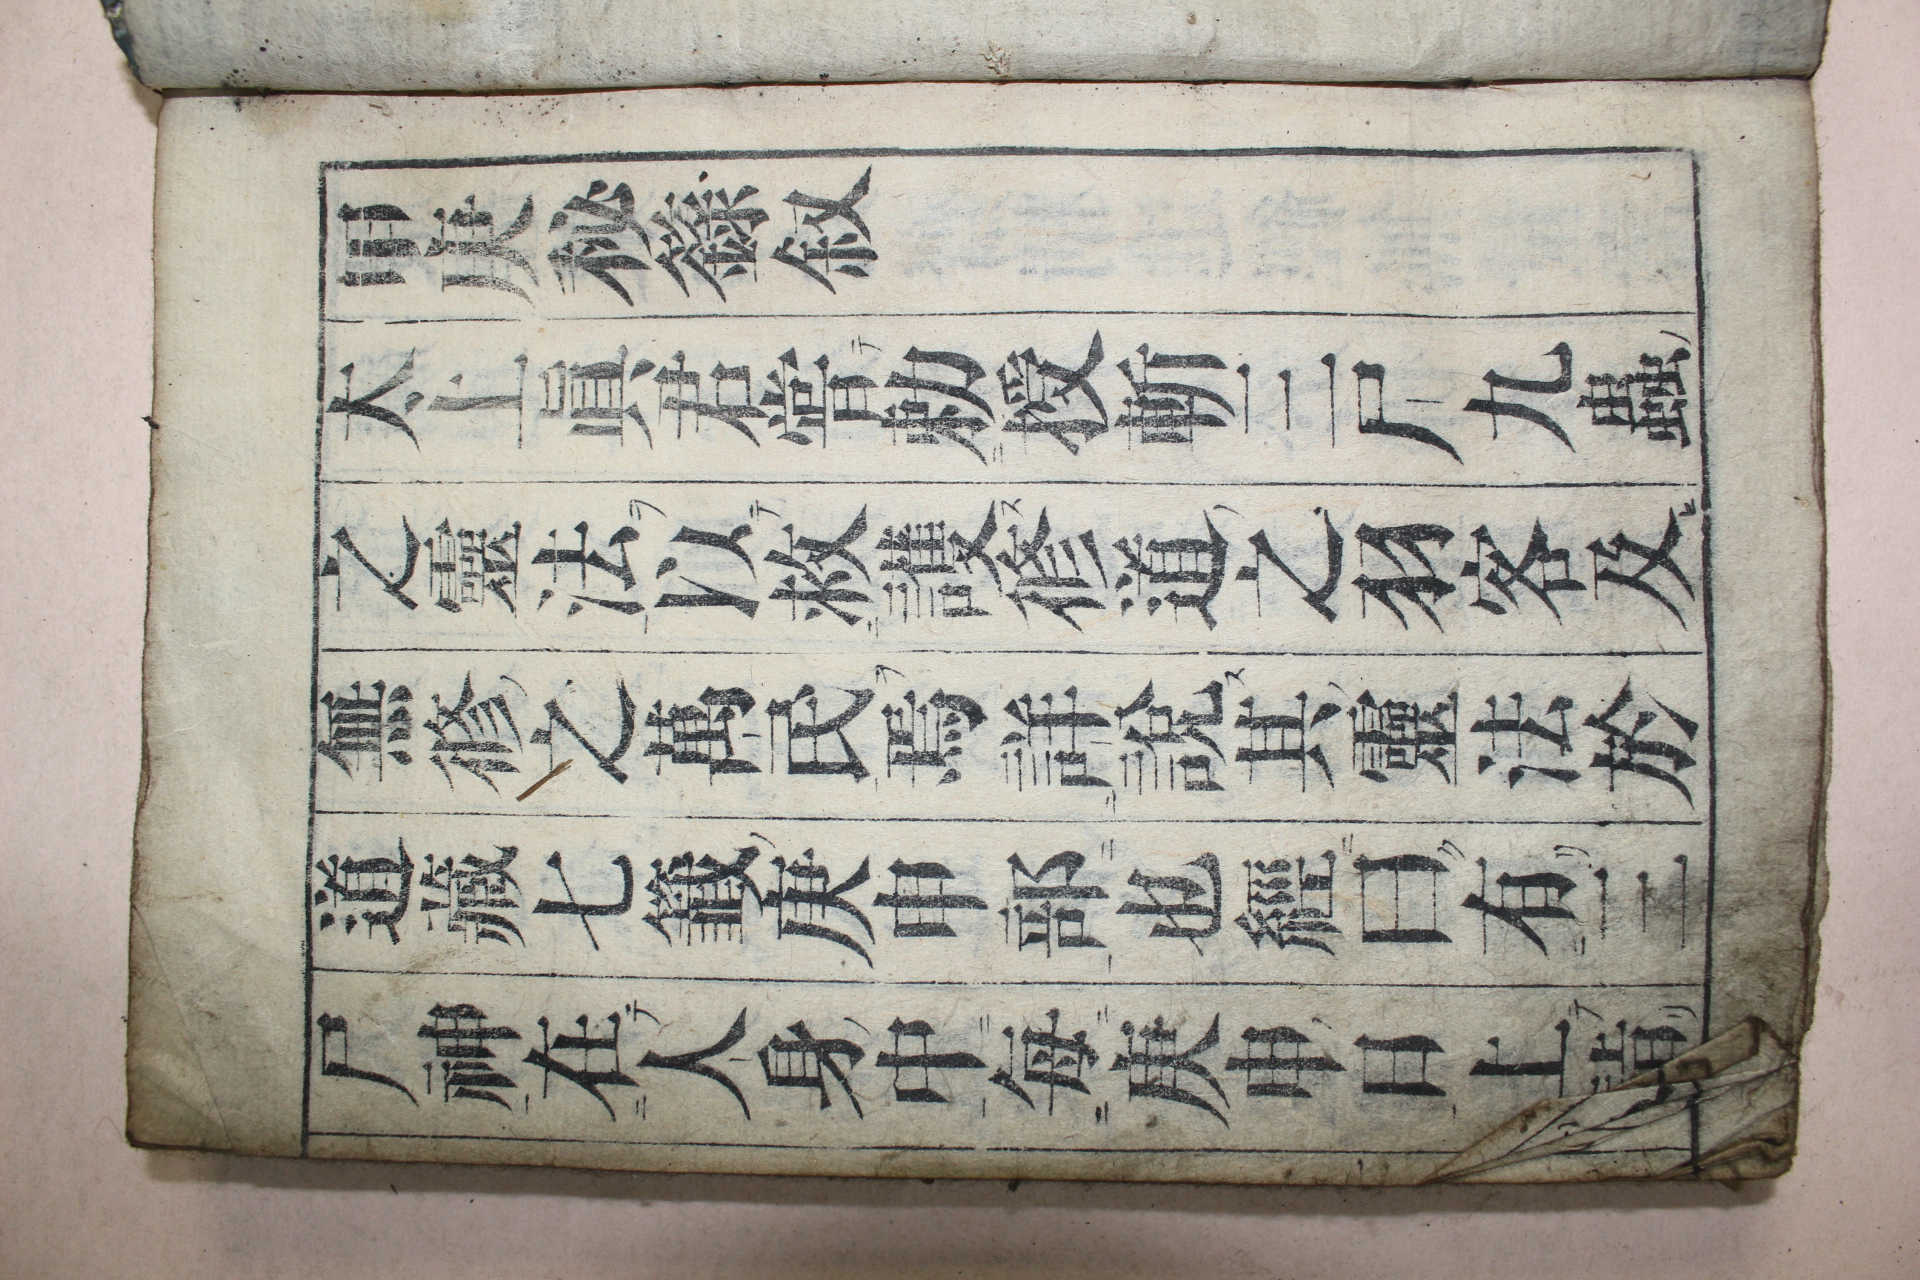 庚秘籙叙
太上眞君嘗勅授斬三尸九蟲
之靈法以救護修道之羽客及
無修之萬民焉詳說其靈法於
道藏七籤庚申部也經曰有三
尸神在人身中每庚申日上詣